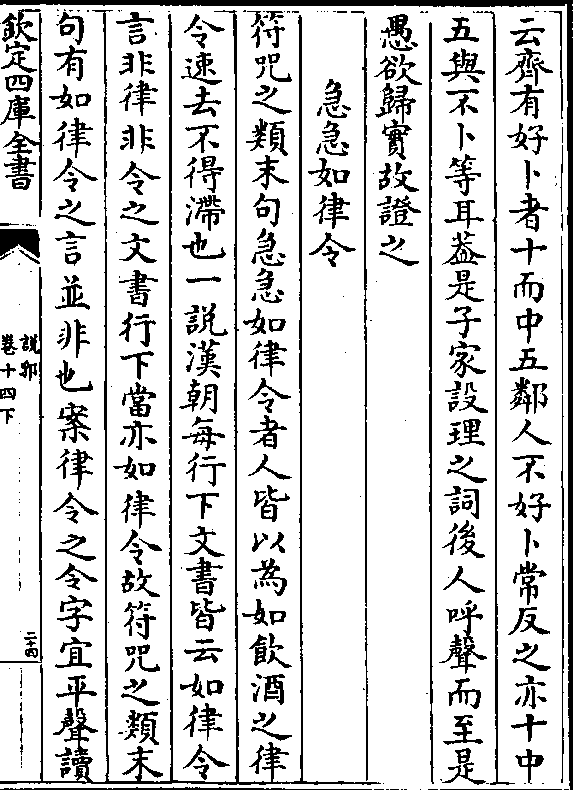 云齊有好卜者十而中五鄰人不好卜常反之亦十中
五與不卜等耳葢是子家設理之詞後人呼聲而至是
愚欲歸實故證之
急急如律令
符咒之類末句急急如律令者人皆以為如飲酒之律
令速去不得滯也一說漢朝每行下文書皆云如律令
言非律非令之文書行下當亦如律令故符咒之類末
句有如律令之言並非也案律令之令字宜平聲讀
欽定四庫全書
說郛
卷十四下
二十四